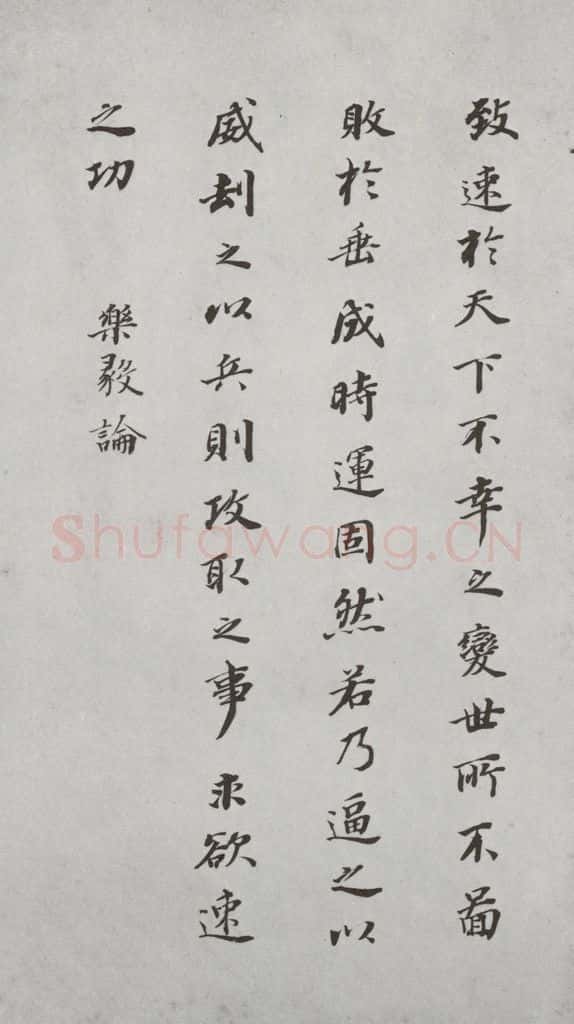 致速於天下不幸之變世所不啚
敗於垂成時運固然若乃逼之以
威刦之以兵則攻取之事求欲速
之功 樂毅論
Shufawang.CN